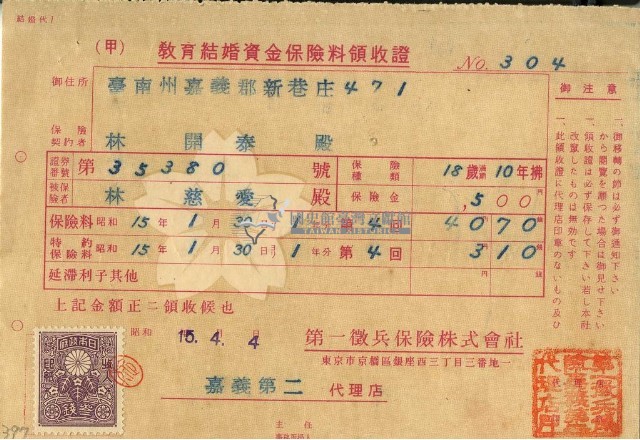 結婚代
(甲) 教育結婚資金保險料領收證
No. 304
御住所 臺南州嘉義郡新巷庄471
保險契約者 林開泰殿
證券番號 第35380號 保險種類 18歲滿期10年拂
被保險者 林慈愛殿 保險金 ,500
保險料 昭和15年1月30日 第4回 4070
特約保險料 昭和15年1月30日 1年分 第4回 310
延滯利子其他
上記金額正ニ領收候也
昭和15.4.4
第一徵兵保險株式會社
東京市京橋區銀座西三丁目三番地一
嘉義第二 代理店
主任
御注意
一、御移轉の節は必ず御通知下さい
領收證は必ず保存して下さい若し本社
から御覽を願つた場合は御見せ下さい
一、改竄したものは無効です
一、此領收證に代理店印章のないもの及ひ
國史館臺灣文獻館
TAIWAN HISTORICA
日本政府
收入印紙
參錢
397